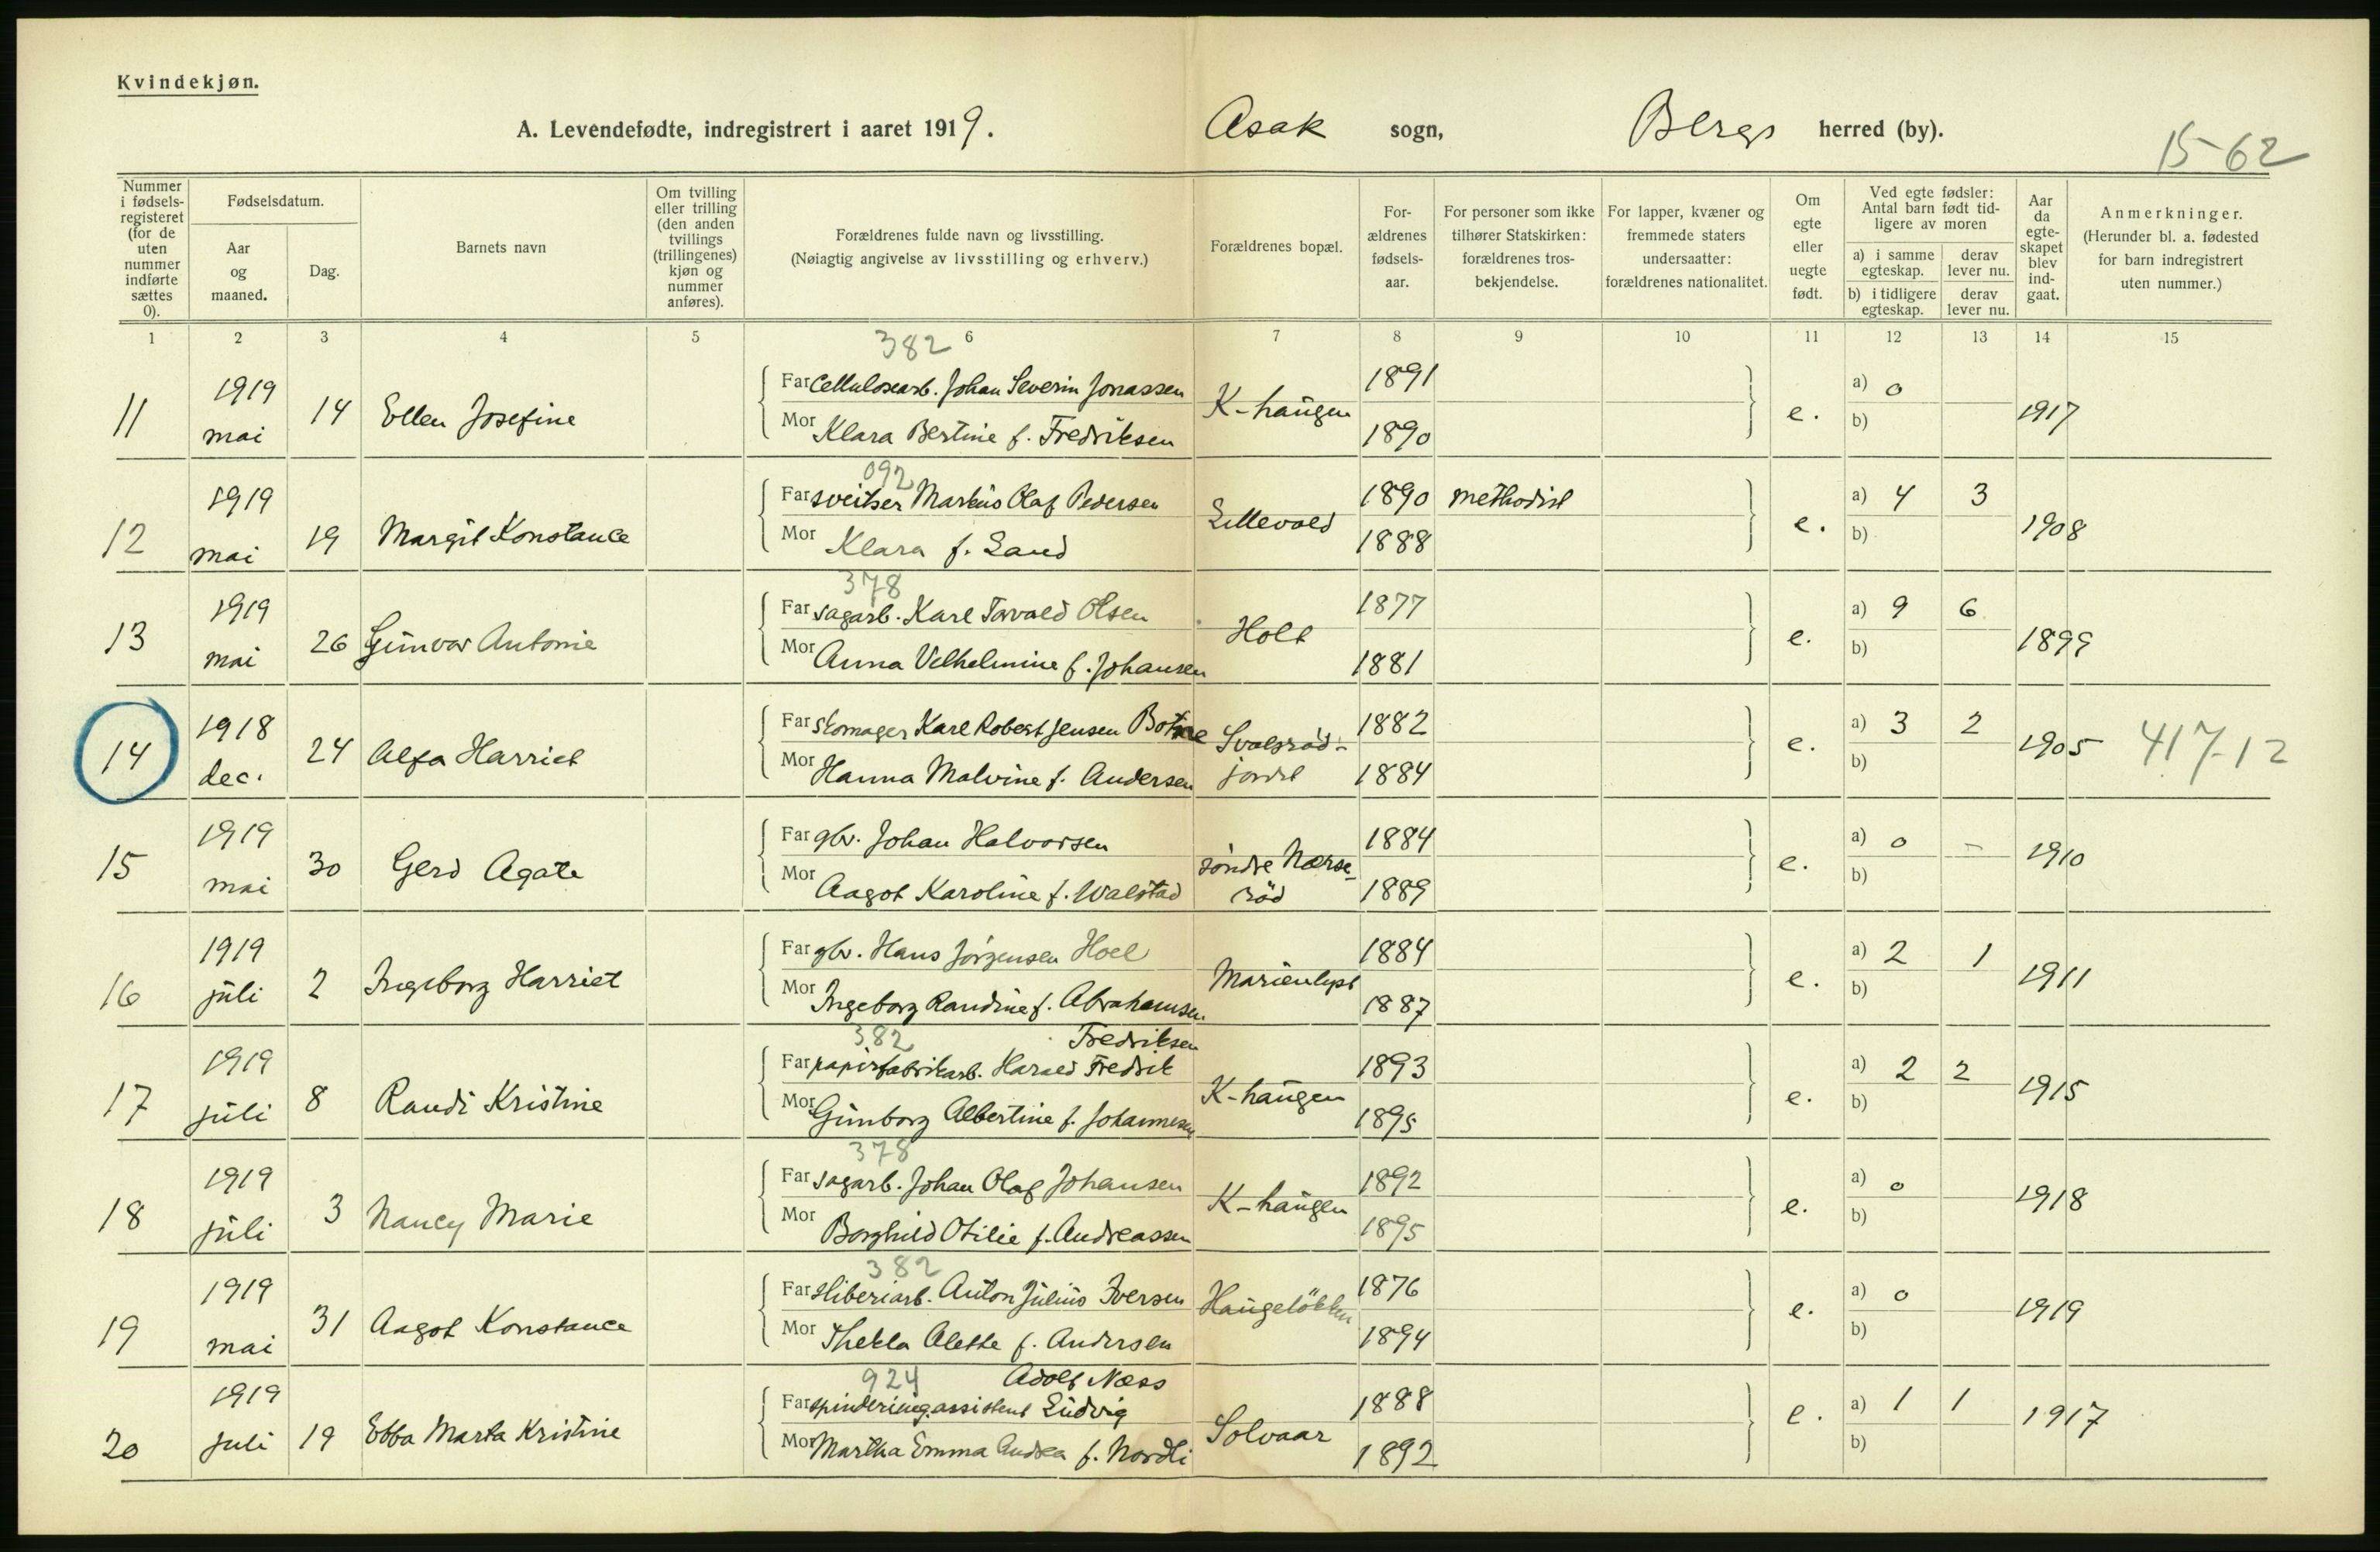 Kvindekjøn.
A. Levendefødte, indregistrert i aaret 1919. Asak sogn, Bergs herred (by).
15-62
Nummer i fødsels-registeret (for de uten nummer indførte sættes 0).
Fødselsdatum.
Aar og maaned.
Dag.
Barnets navn
Om tvilling eller trilling (den anden tvillings (trillingenes) kjøn og nummer anføres).
Forældrenes fulde navn og livsstilling.
(Nøiagtig angivelse av livsstilling og erhverv.)
Forældrenes bopæl.
For-ældrenes fødsels-aar.
For personer som ikke tilhører Statskirken: forældrenes tros-bekjendelse.
For lapper, kvæner og fremmede staters undersaatter: forældrenes nationalitet.
Om egte eller uegte født.
Ved egte fødsler: Antal barn født tid-ligere av moren
a) i samme egteskap.
derav lever nu.
b) i tidligere egteskap.
derav lever nu.
Aar da egte-skapet blev ind-gaat.
Anmerkninger.
(Herunder bl. a. fødested for barn indregistrert uten nummer.)
1 2 3 4 5 6 7 8 9 10 11 12 13 14 15
382
11 1919 mai 14 Ellen Josefine
Far Cellulosearb. Johan Severin Jonassen
Mor Klara Bertine f. Fredriksen
K-haugen 1891 1890 e. a) 0 b) 1917
092
12 1919 mai 19 Margit Konstance
Far sveitser Markus Olaf Pedersen
Mor Klara f. Land
Lillevold 1890 1888 methodist e. a) 4 3 b) 1908
378
13 1919 mai 26 Gunvor Antonie
Far sagarb. Karl Torvald Olsen
Mor Anna Vilhelmine f. Johansen
Holt 1877 1881 e. a) 9 6 b) 1899
14 1918 dec. 24 Alfa Harriet
Far skomager Karl Robert Jensen Botne
Mor Hanna Malvine f. Andersen
Svalsrød-jordet 1882 1884 e. a) 3 2 b) 1905 417-12
15 1919 mai 30 Gerd Agate
Far gbr. Johan Halvorsen
Mor Aagot Karoline f. Walstad
søndre Nærse-rød 1884 1889 e. a) 0 - b) 1910
16 1919 juli 2 Ingeborg Harriet
Far gbr. Hans Jørgensen Hoel
Mor Ingeborg Randine f. Abrahamsen
Marienlyst 1884 1887 e. a) 2 1 b) 1911
382 Fredriksen
17 1919 juli 8 Randi Kristine
Far papirfabrikarb. Harald Fredrik
Mor Gunborg Albertine f. Johannesen
K-haugen 1893 1895 e. a) 2 2 b) 1915
378
18 1919 juli 3 Nancy Marie
Far sagarb. Johan Olaf Johansen
Mor Borghild Otilie f. Andreassen
K-haugen 1892 1895 e. a) 0 b) 1918
382
19 1919 mai 31 Aagot Konstance
Far sliberiarb. Anton Julius Iversen
Mor Thekla Alette f. Andersen
Haugeløkken 1876 1894 e. a) 0 b) 1919
924 Adolf Næss
20 1919 juli 19 Ebba Marta Kristine
Far spinderiingassistent Ludvig
Mor Martha Emma Andrea f. Nordli
Solvaar 1888 1892 e. a) 1 1 b) 1917